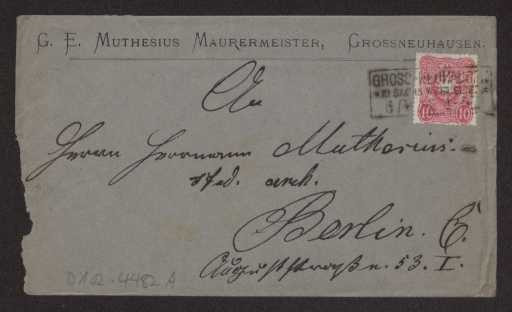 G. E. MUTHESIUS MAURERMEISTER, GROSSNEUHAUSEN.
An
Herrn Hermann Muthesius
stud. arch.
Berlin. C.
Auguststraße n. 53. I.
D 102-4482 A
10 10